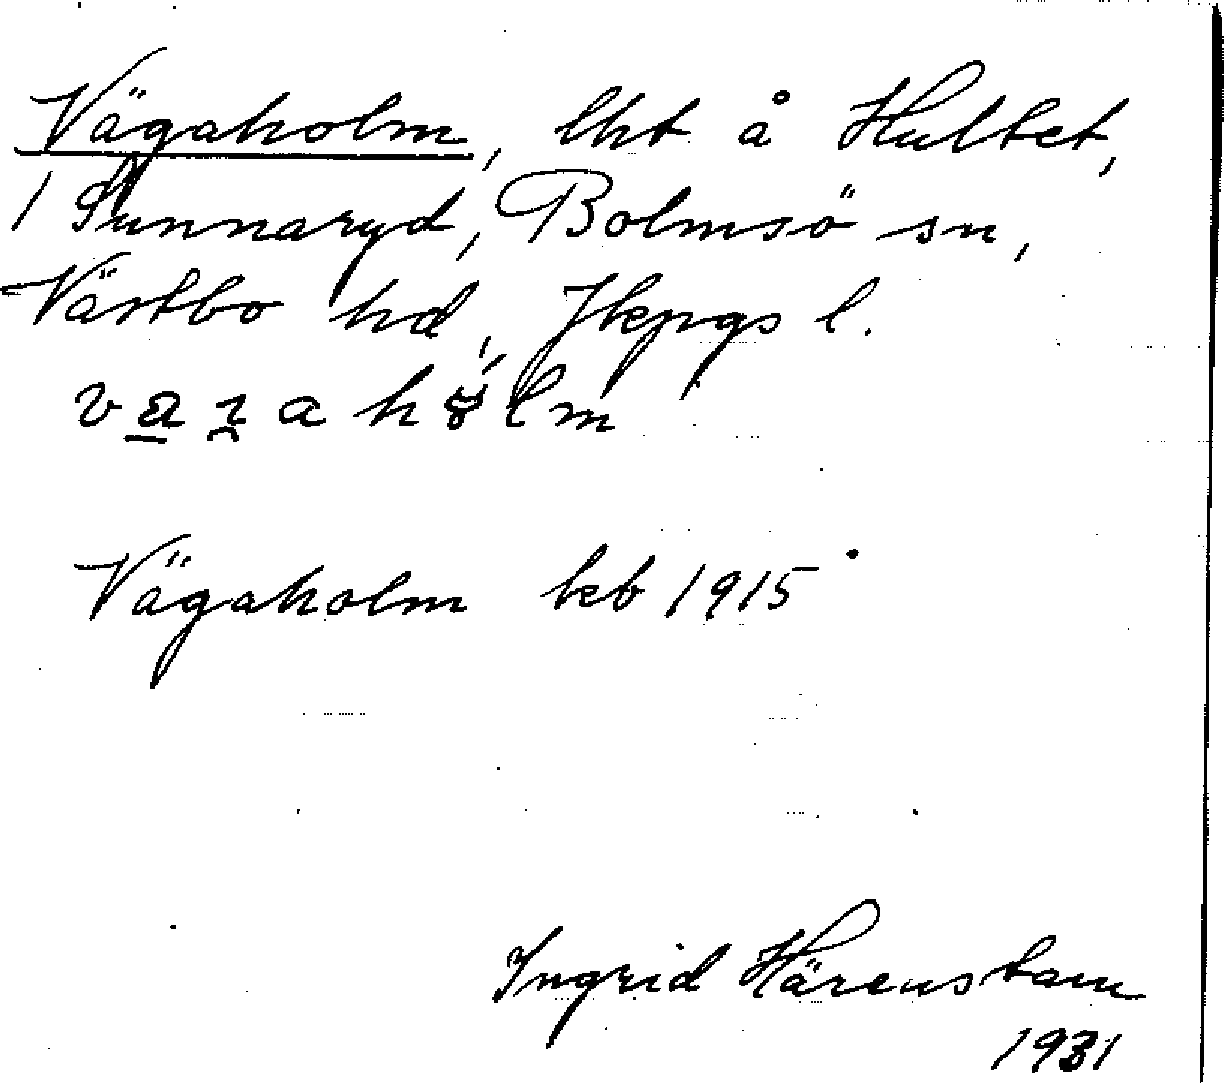 Vägaholm, lht å Hultet,
1 Sunnaryd, Bolmsö sn,
Västbo hd, Jkpgs l.
Vägaholm kb 1915
Ingrid Härenstam
1931